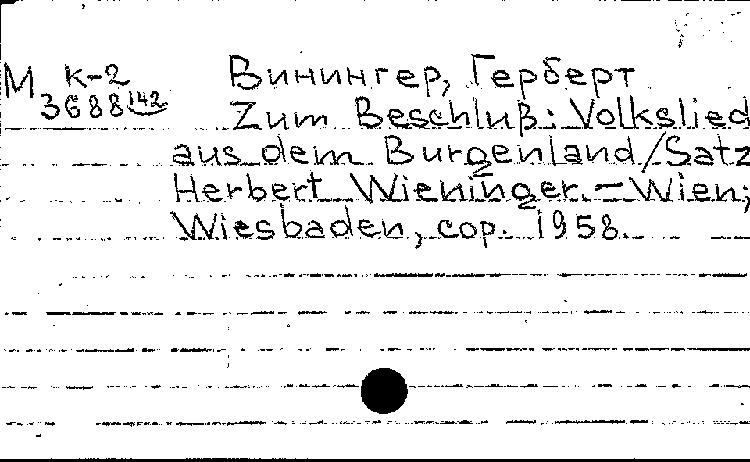 М к-2 Винингер, Герберт
3688 142 Zum Beschluß: Volkslied
aus dem Burgenland/Satz
Herbert Wieninger. – Wien;
Wiesbaden, cop. 1958.